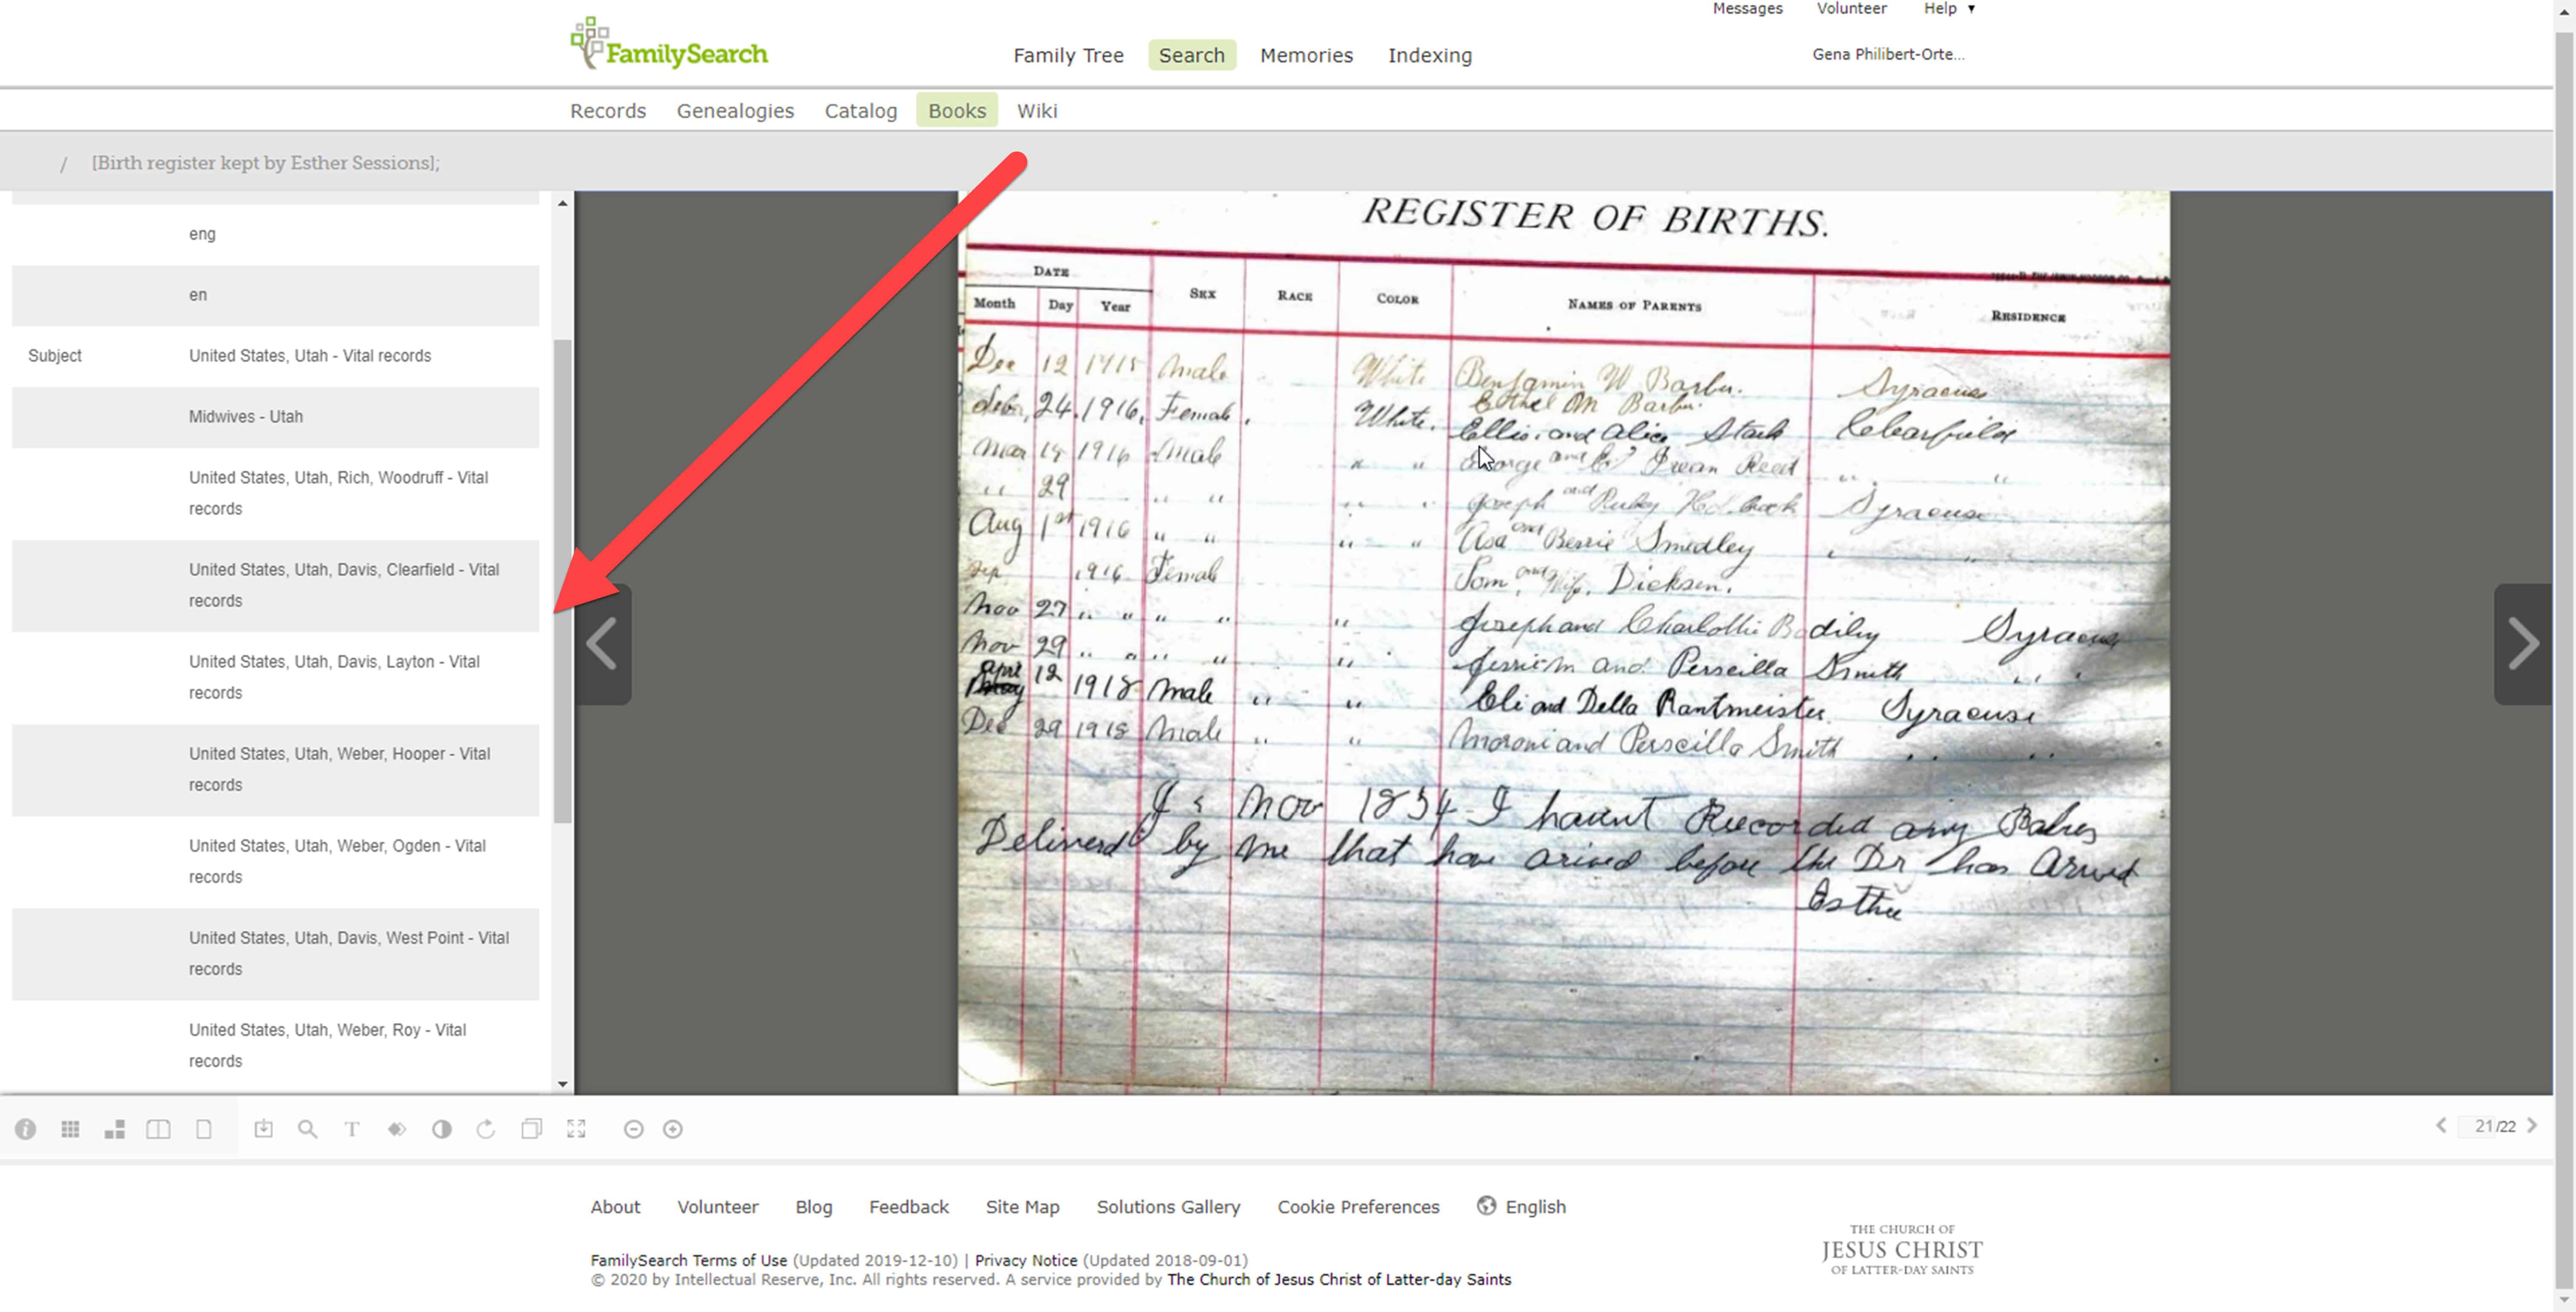 Messages Volunteer Help ▼
FamilySearch
Family Tree Search Memories Indexing
Gena Philibert-Orte...
Records Genealogies Catalog Books Wiki
/ [Birth register kept by Esther Sessions];
eng
en
Subject United States, Utah - Vital records
Midwives - Utah
United States, Utah, Rich, Woodruff - Vital
records
United States, Utah, Davis, Clearfield - Vital
records
United States, Utah, Davis, Layton - Vital
records
United States, Utah, Weber, Hooper - Vital
records
United States, Utah, Weber, Ogden - Vital
records
United States, Utah, Davis, West Point - Vital
records
United States, Utah, Weber, Roy - Vital
records
REGISTER OF BIRTHS.
DATE
Month Day Year SEX RACE COLOR NAMES OF PARENTS RESIDENCE
Dec 12 1915 Male White Benjamin W Barber. Syracuse
Ethel M Barber.
24. 1916, Female, White. Ellis and Alice Stark Clearfield
Mar 19 1916 Male " " George and Reed " "
" 29 " " " " Joseph and Ruby Holbrook Syracuse
Aug 1st 1916 " " " " Asa and Bessie Smedley " "
Sep 1916 Female Tom and Wife. Dickson.
Nov 27 " " " " " Joseph and Charlottie Bodiley Syracuse
Nov 29 " " " " " and Perscilla Smith " "
12 1918 Male " " Eli and Della Rantmeister. Syracuse
Dec 29 1918 Male " " Moroni and Perscilla Smith " "
Nov 1834 I havent Recorded any Babes
Deliverd by me that have arived before the Dr has Arived
Esther
21/22
About Volunteer Blog Feedback Site Map Solutions Gallery Cookie Preferences English
FamilySearch Terms of Use (Updated 2019-12-10) | Privacy Notice (Updated 2018-09-01)
© 2020 by Intellectual Reserve, Inc. All rights reserved. A service provided by The Church of Jesus Christ of Latter-day Saints
THE CHURCH OF
JESUS CHRIST
OF LATTER-DAY SAINTS